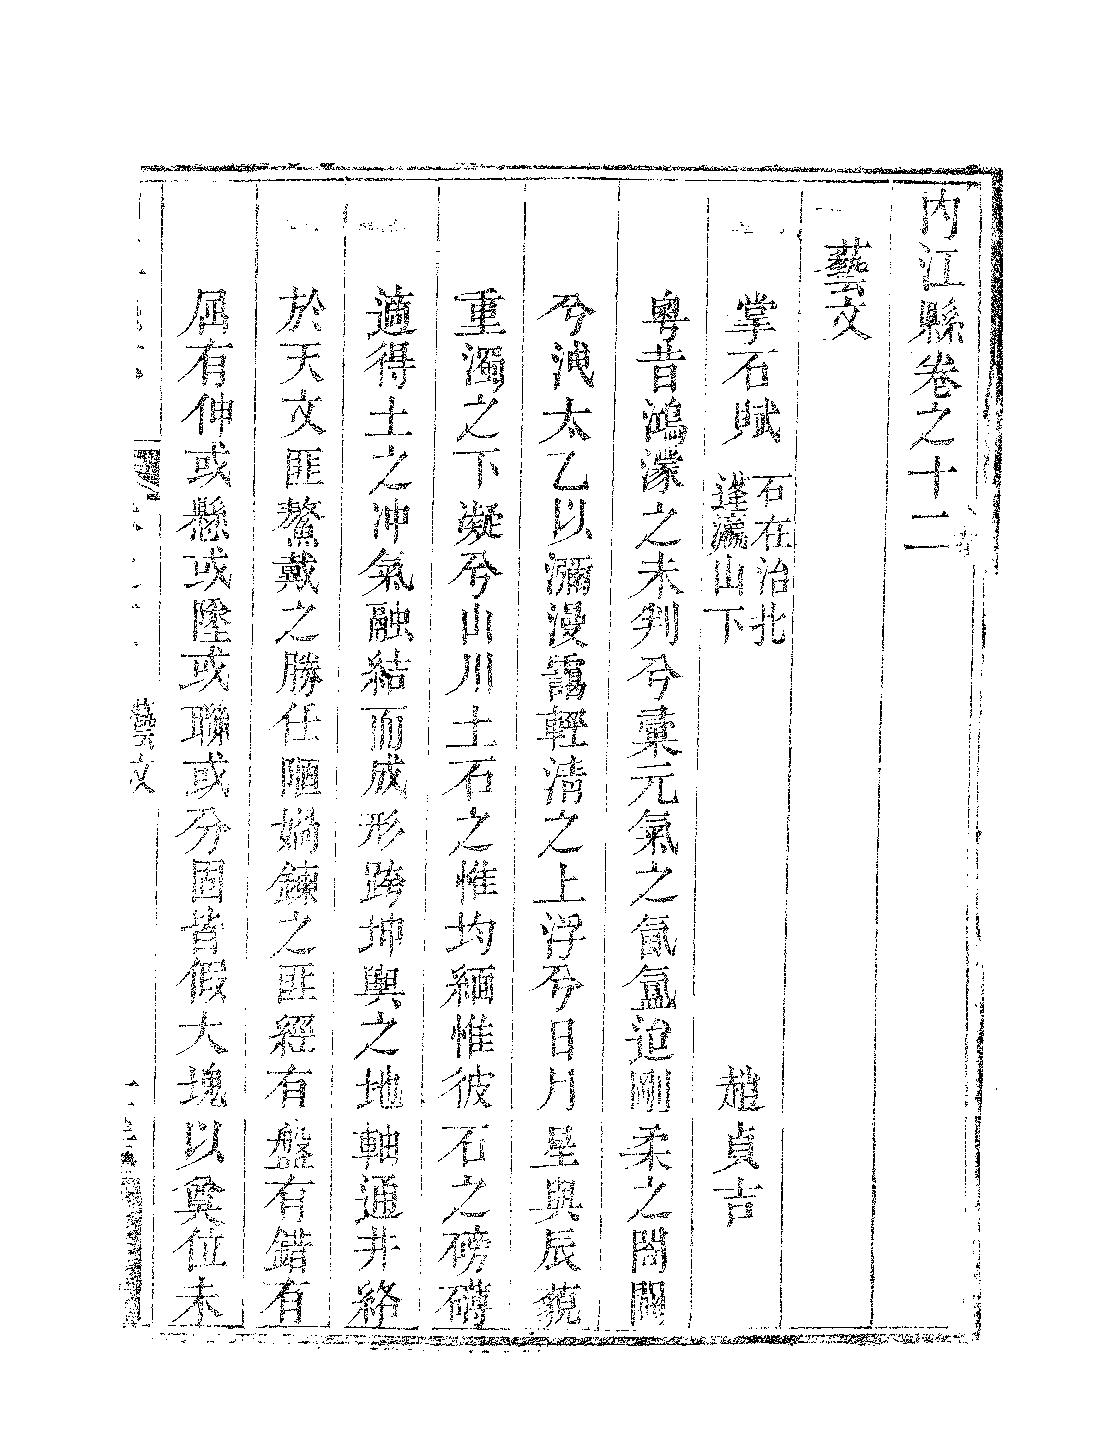 內江縣卷之十二
藝文
掌石賦 石在治北蓬瀛山下 趙貞吉
粵昔鴻濛之未判兮稟元氣之氤氳迨剛柔之闔闢
兮洩太乙以瀰漫靄輕清之上浮兮日月星與辰藐
重濁之下凝兮山川土石之惟均緬惟彼石之磅礴
適得土之冲氣融結而成形跨坤輿之地軸通井絡
於天文匪鰲戴之勝任陋媧鍊之匪經有盤有錯有
屈有伸或懸或墜或聯或分固皆假大塊以奠位未
藝文